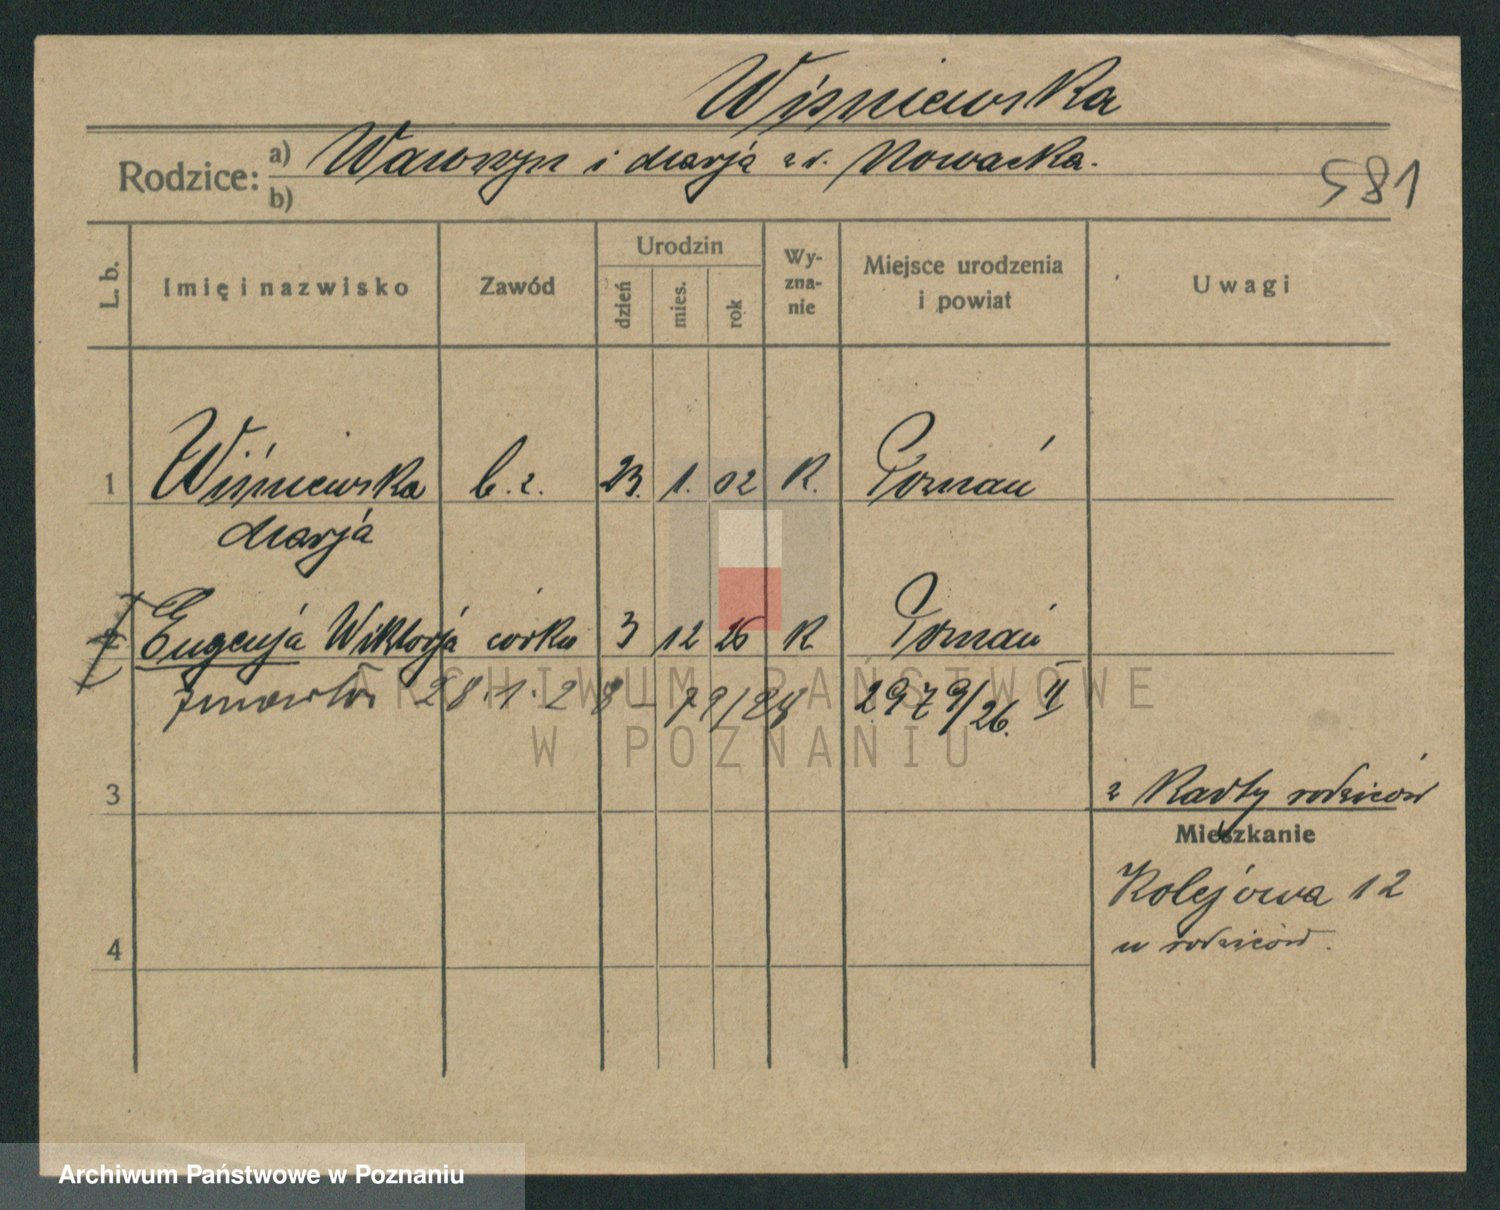 Wiśniewska
Rodzice: a) Wawrzyn i Marja z d. Nowacka.
b)
581
L. b.
Imię i nazwisko
Zawód
Urodzin
dzień
mies.
rok
Wy-
zna-
nie
Miejsce urodzenia
i powiat
Uwagi
1 Wiśniewska b. z. 23. 1. 02 R. Poznań
Marja
Eugenja Wiktorja córka 3 12 26 R. Poznań
zmarła 28.1.28 – 79/28 2979/26. II
3
z Karty rodziców
Mieszkanie
Kolejowa 12
u rodziców.
4
ARCHIWUM PAŃSTWOWE
W POZNANIU
Archiwum Państwowe w Poznaniu